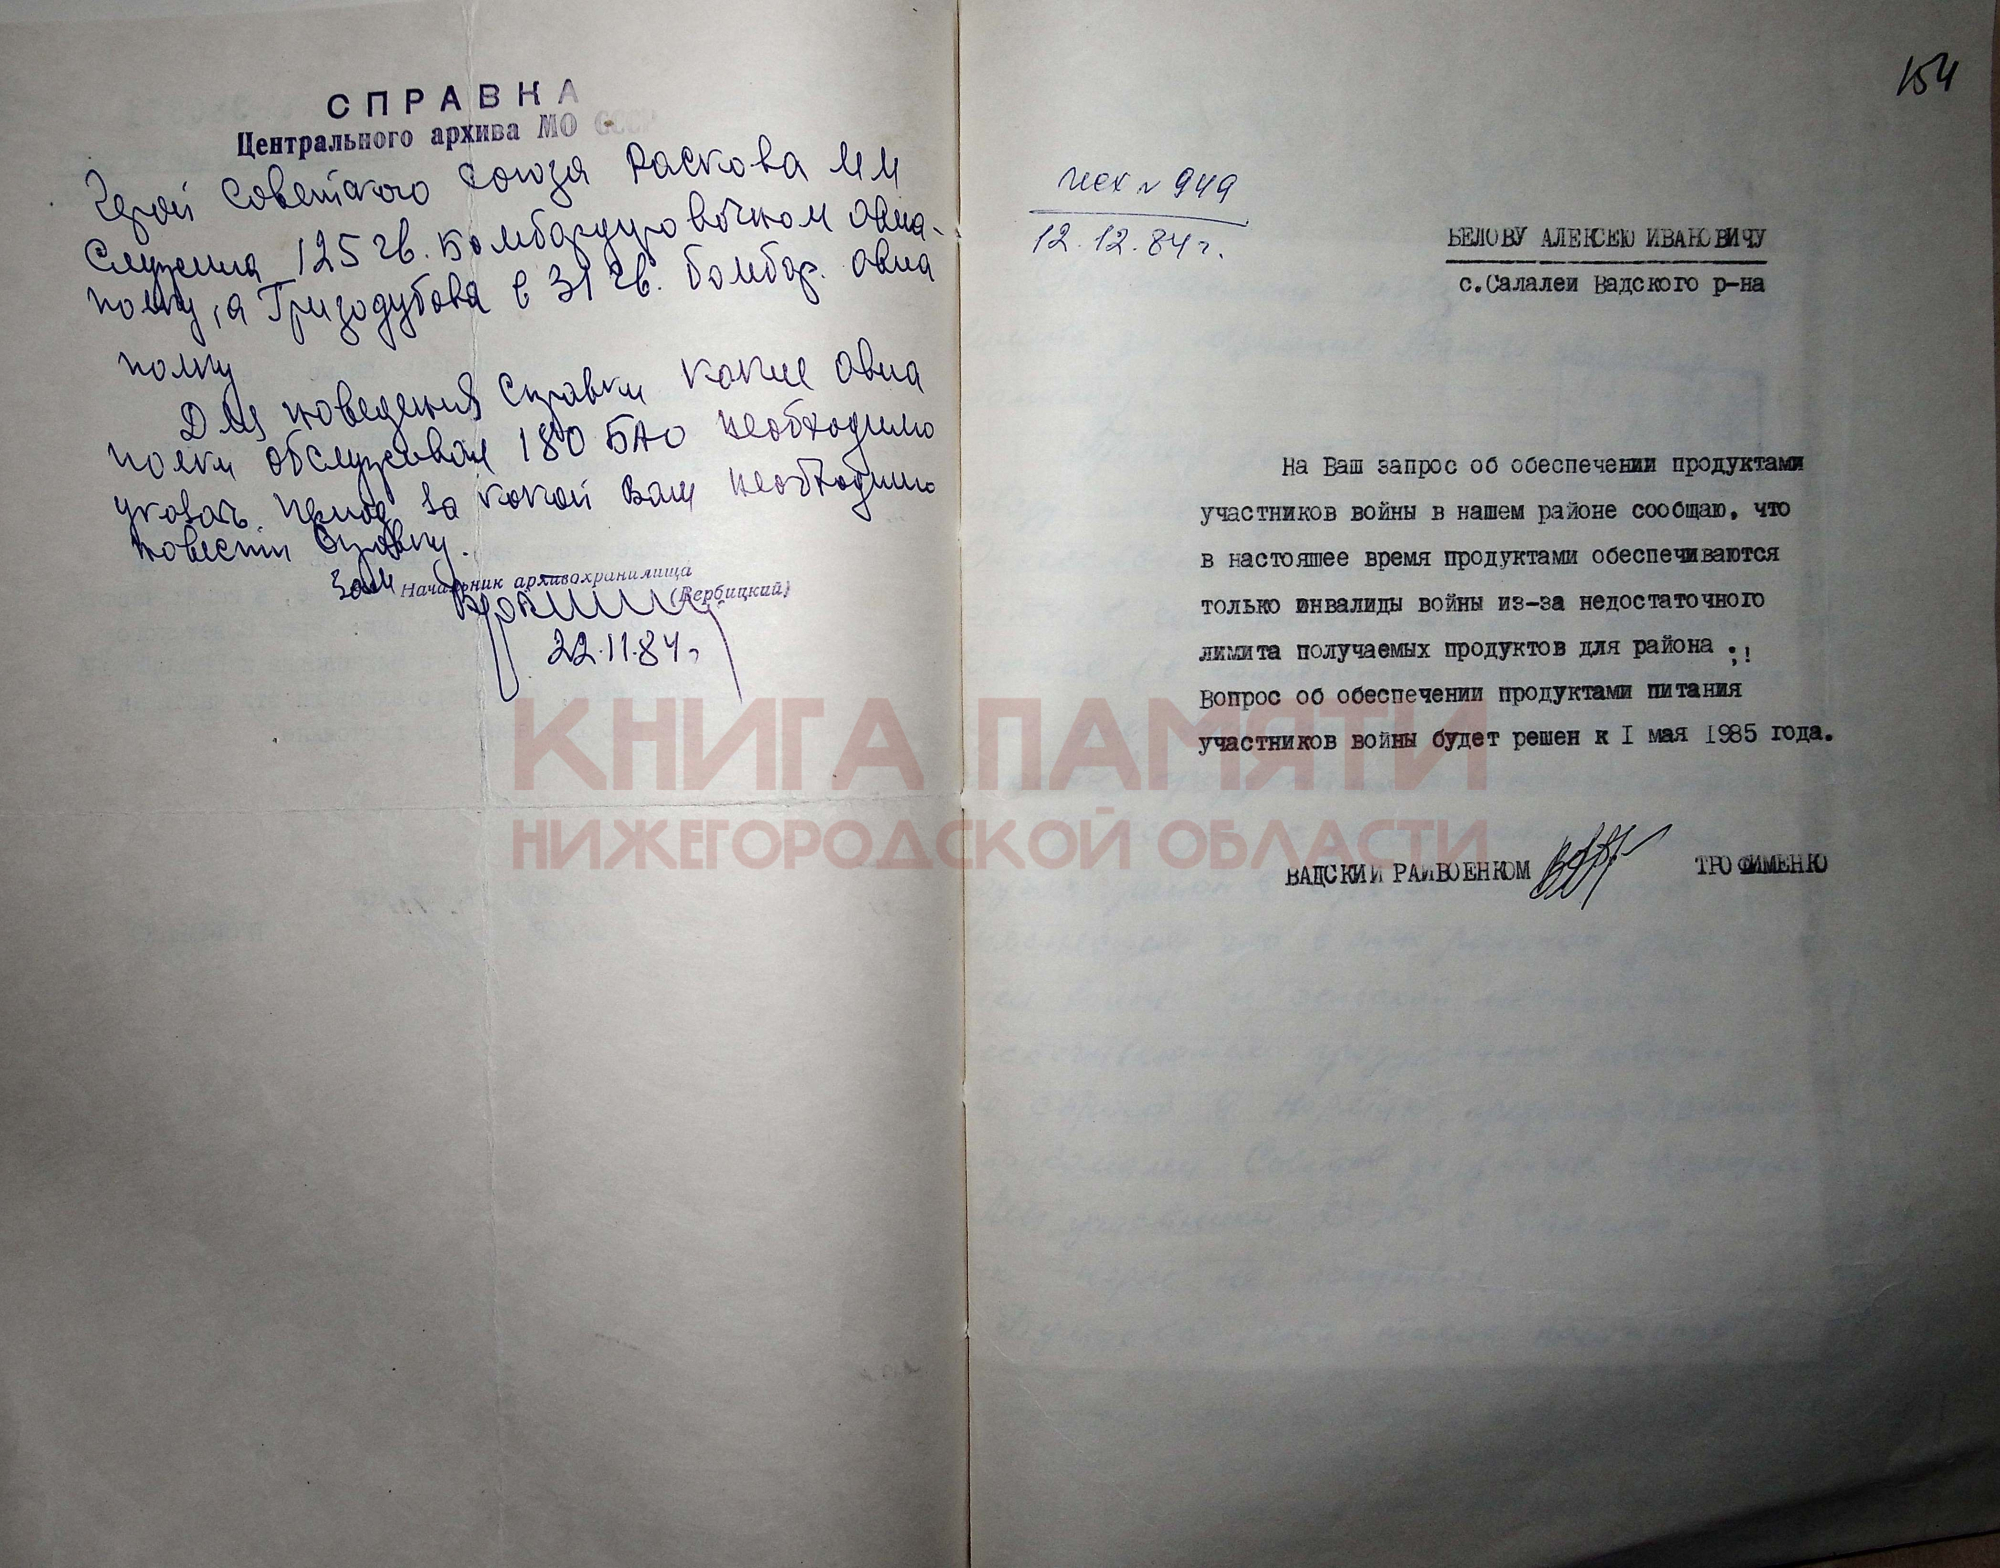 СПРАВКА
Центрального архива МО СССР
Герой Советского Союза Раскова М М
Служила 125 гв. Бомбардировочном авиа-
полку, а Гризодубова в 31 гв. бомбар. авиа
полку
Для наведения справки какие авиа
полки обслуживал 180 БАО необходимо
указать период за какой Вам необходимо
навести справку.
Зам Начальник архивохранилища
(Вербицкий)
22.11.84 г.
154
исх № 949
12.12.84 г.
БЕЛОВУ АЛЕКСЕЮ ИВАНОВИЧУ
с.Салалеи Вадского р-на
На Ваш запрос об обеспечении продуктами
участников войны в нашем районе сообщаю, что
в настоящее время продуктами обеспечиваются
только инвалиды войны из-за недостаточного
лимита получаемых продуктов для района
Вопрос об обеспечении продуктами питания
участников войны будет решен к I мая 1985 года.
ВАДСКИЙ РАЙВОЕНКОМ ТРОФИМЕНКО
КНИГА ПАМЯТИ
НИЖЕГОРОДСКОЙ ОБЛАСТИ